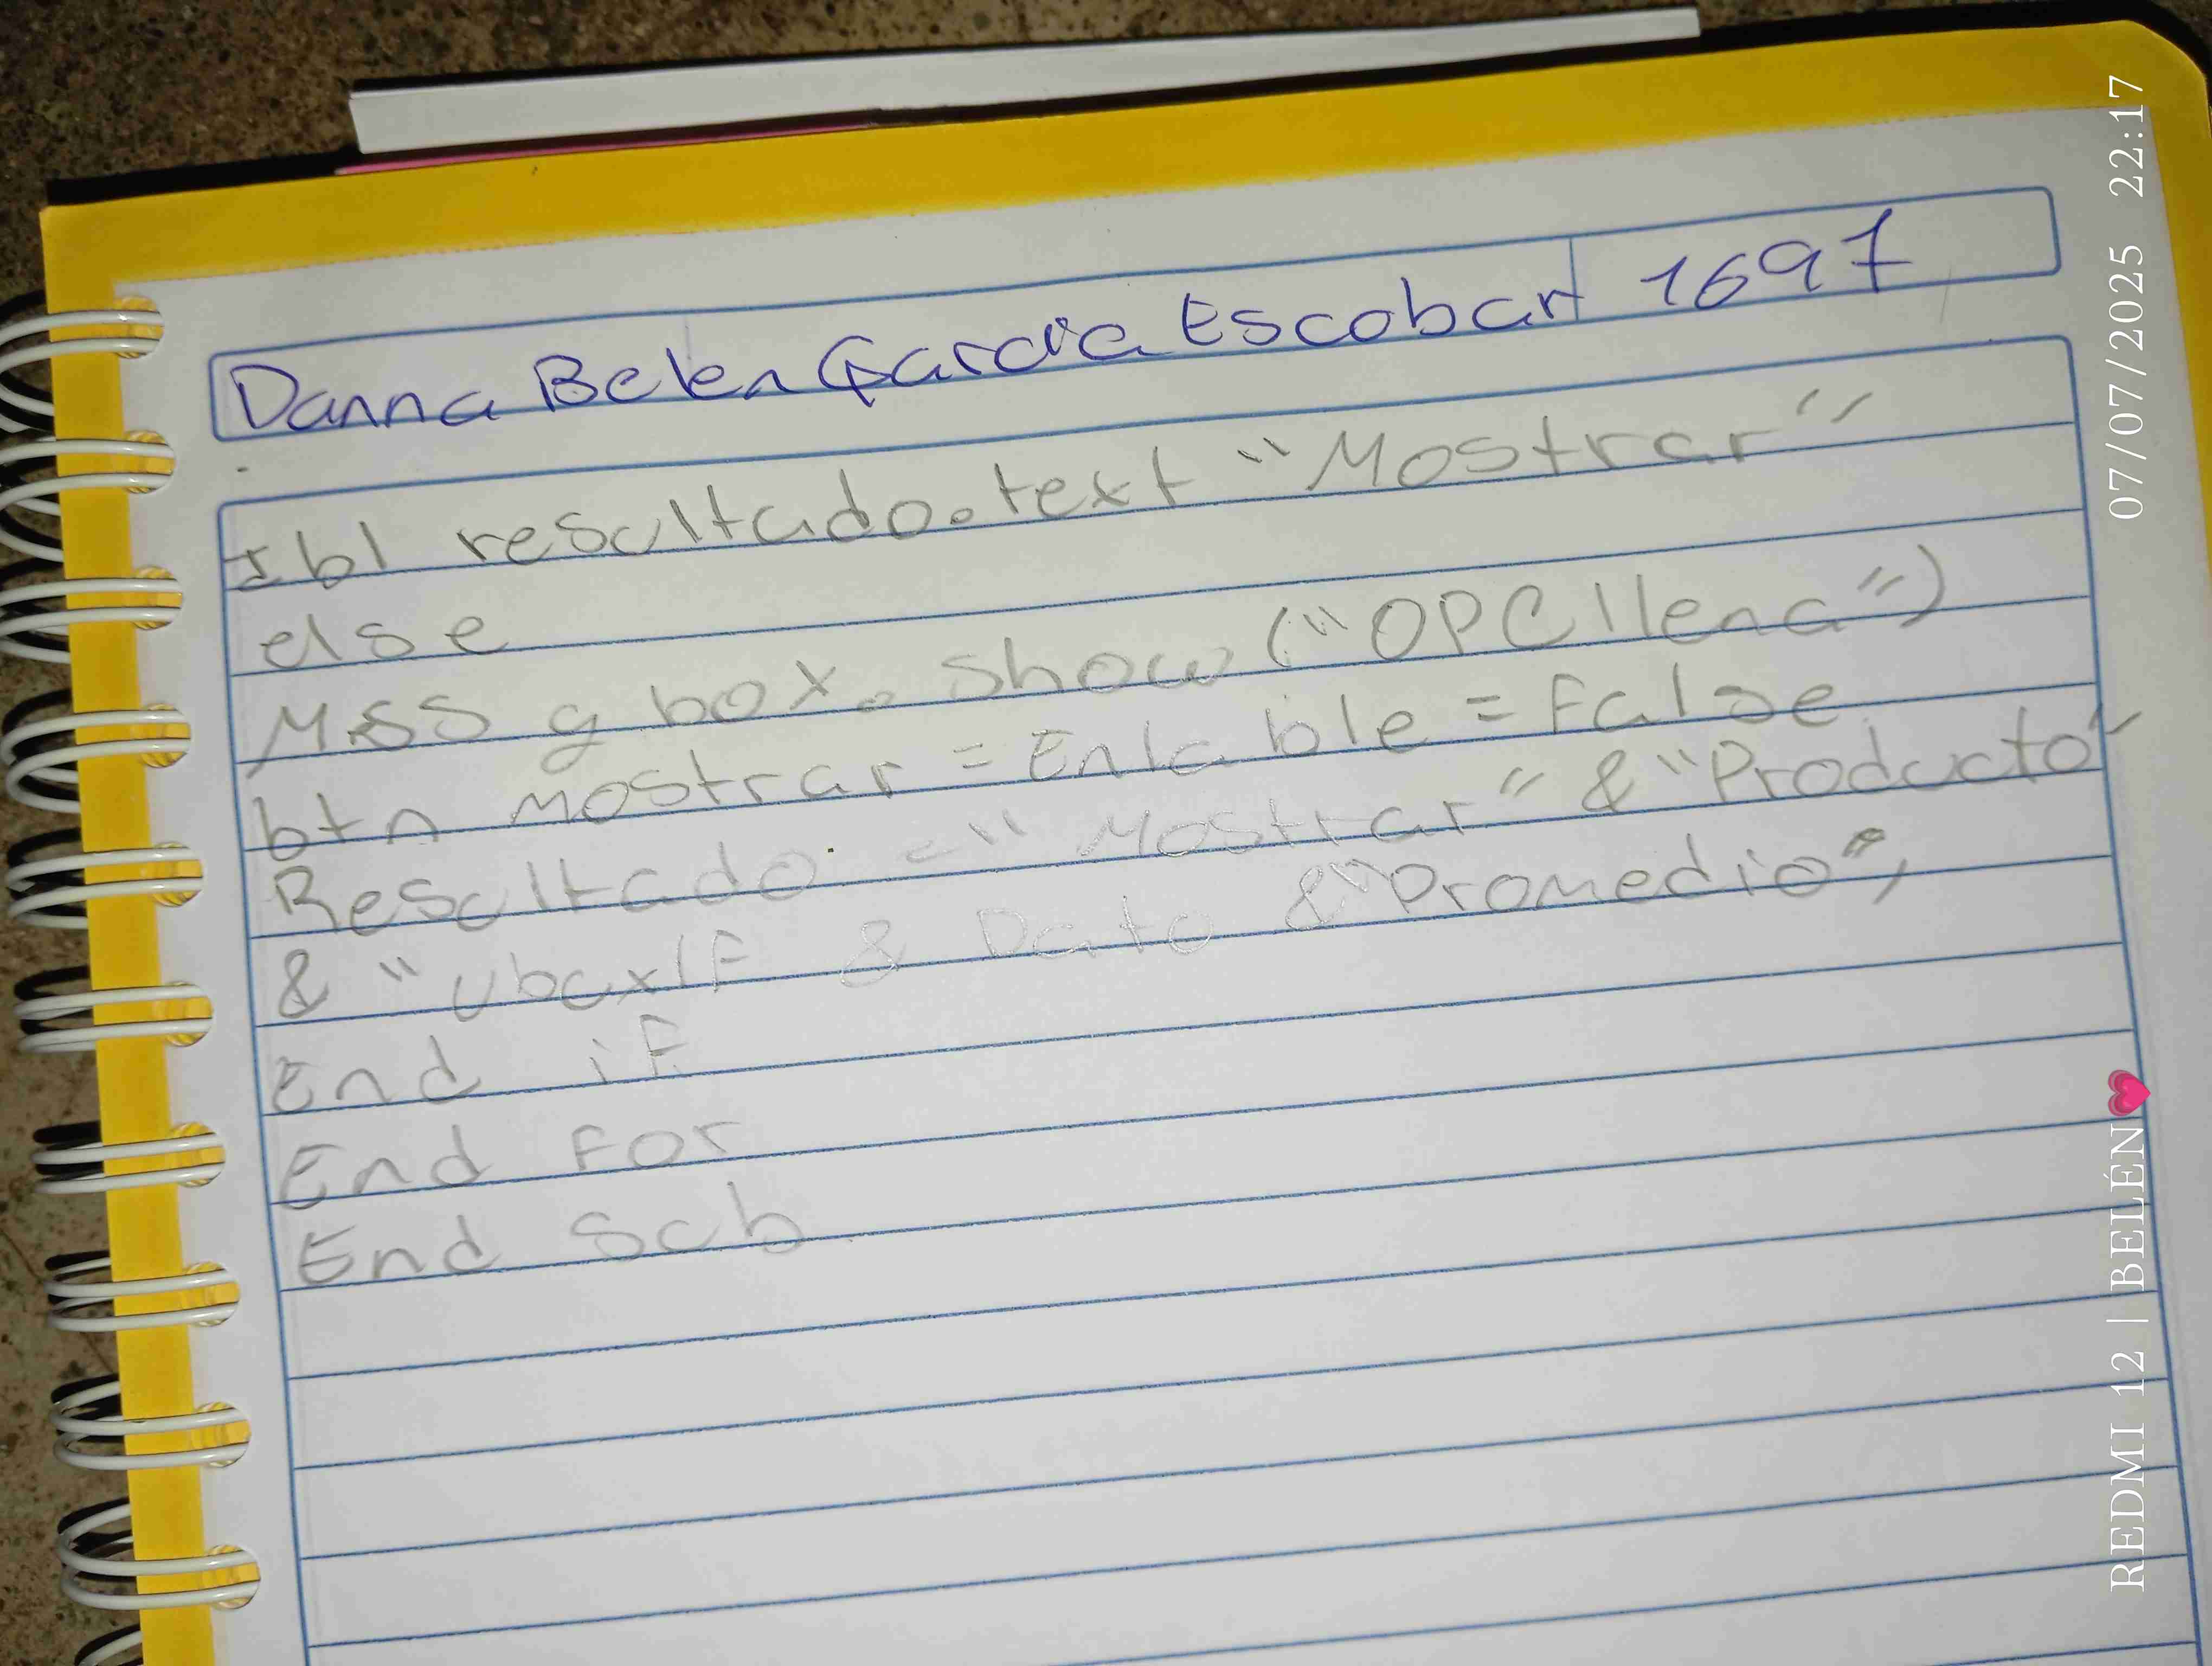 Danna Belen Garcia Escobar 1697
Ibl resultado.text "Mostrar"
else
MSS g box. show ("OPC llena")
btn mostrar = Enlable = False
Resultado = "Mostrar" & "Producto"
& "Ubcxlf & Dato & "Promedio",
End if
End For
End Sub
07/07/2025 22:17
REDMI 12 | BELÉN💗